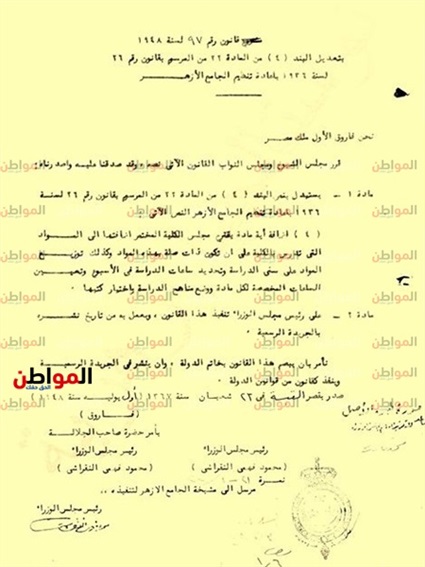 قانون رقم ٩٧ لسنة ١٩٤٨
بتعديل البند (٤) من المادة ٢٢ من المرسوم بقانون رقم ٢٦
لسنة ١٩٣٦ باعادة تنظيم الجامع الأزهر
نحن فاروق الأول ملك مصر
قرر مجلس الشيوخ ومجلس النواب القانون الآتي نصه وقد صدقنا عليه واصدرناه :
مادة ١ - يستبدل بنص البند (٤) من المادة ٢٢ من المرسوم بقانون رقم ٢٦ لسنة
١٩٣٦ باعادة تنظيم الجامع الأزهر النص الآتي :
(٤) اضافة أية مادة يقترح مجلس الكلية المختص اضافتها الى المواد
التي تدرس بالكلية على ان تكون ذات صلة بهذه المواد وكذلك توزيع
المواد على سنى الدراسة وتحديد ساعات الدراسة في الأسبوع وتعيين
الساعات المخصصة لكل مادة ووضع مناهج الدراسة واختيار كتبها .
مادة ٢ - على رئيس مجلس الوزراء تنفيذ هذا القانون ، ويعمل به من تاريخ نشره
بالجريدة الرسمية .
نأمر بأن يبصم هذا القانون بخاتم الدولة ، وان ينشر في الجريدة الرسمية
وينفذ كقانون من قوانين الدولة .
المواطن
صدر بقصر القبة في ٢٣ شعبان سنة ١٣٦٧ (أول يوليه سنة ١٩٤٨)
(فاروق)
بأمر حضرة صاحب الجلالة
رئيس مجلس الوزراء رئيس مجلس الوزراء
محمود فهمي النقراشي محمود فهمي النقراشي
مرسل الى مشيخة الجامع الازهر لتنفيذه ..
رئيس مجلس الوزراء